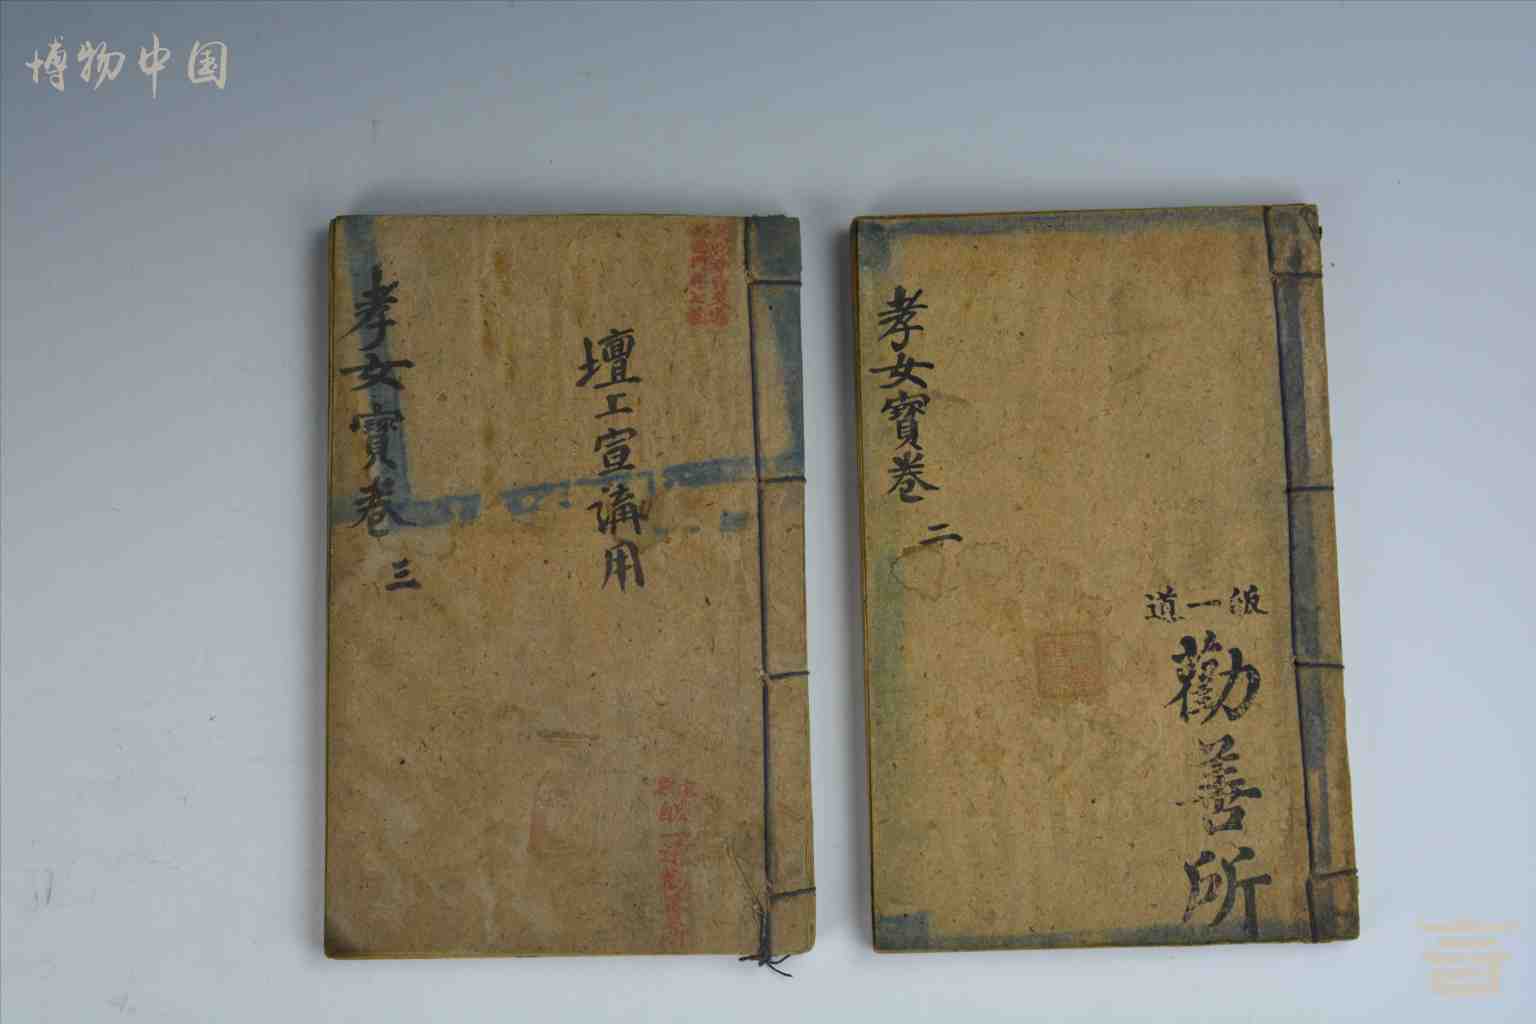 博物中国
孝女寶卷 三
壇工宣講用
孝女寶卷 二
皈一道
勸善所